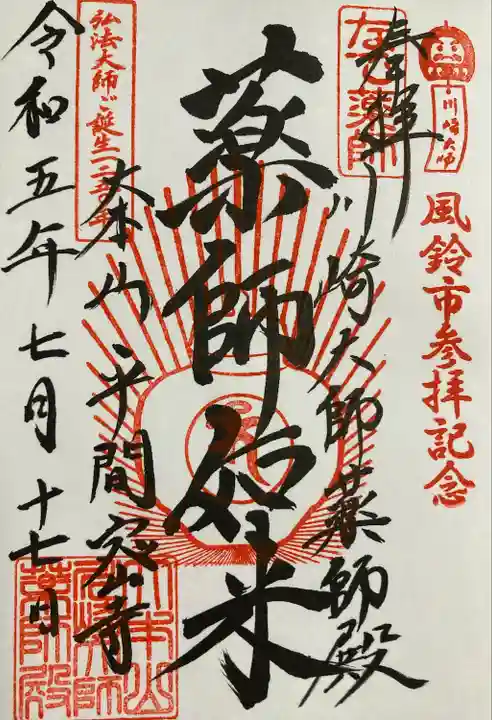 川崎大師
風鈴市参拝記念
奉拝
なで薬師
川崎大師薬師殿
薬師如来
弘法大師ご誕生一二五〇年
大本山平間寺
大本山川崎大師薬師殿
令和五年七月十七日